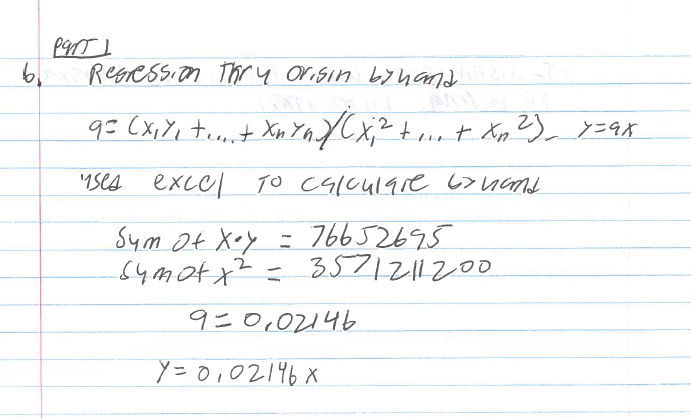 Part 1
b. Regression thru origin by hand
a = (x₁y₁ + ... + xₙyₙ)/(x₁² + ... + xₙ²) y=ax
used excel to calculate by hand
Sum of x•y = 76652695
Sum of x² = 3571211200
a = 0.02146
y = 0.02146x